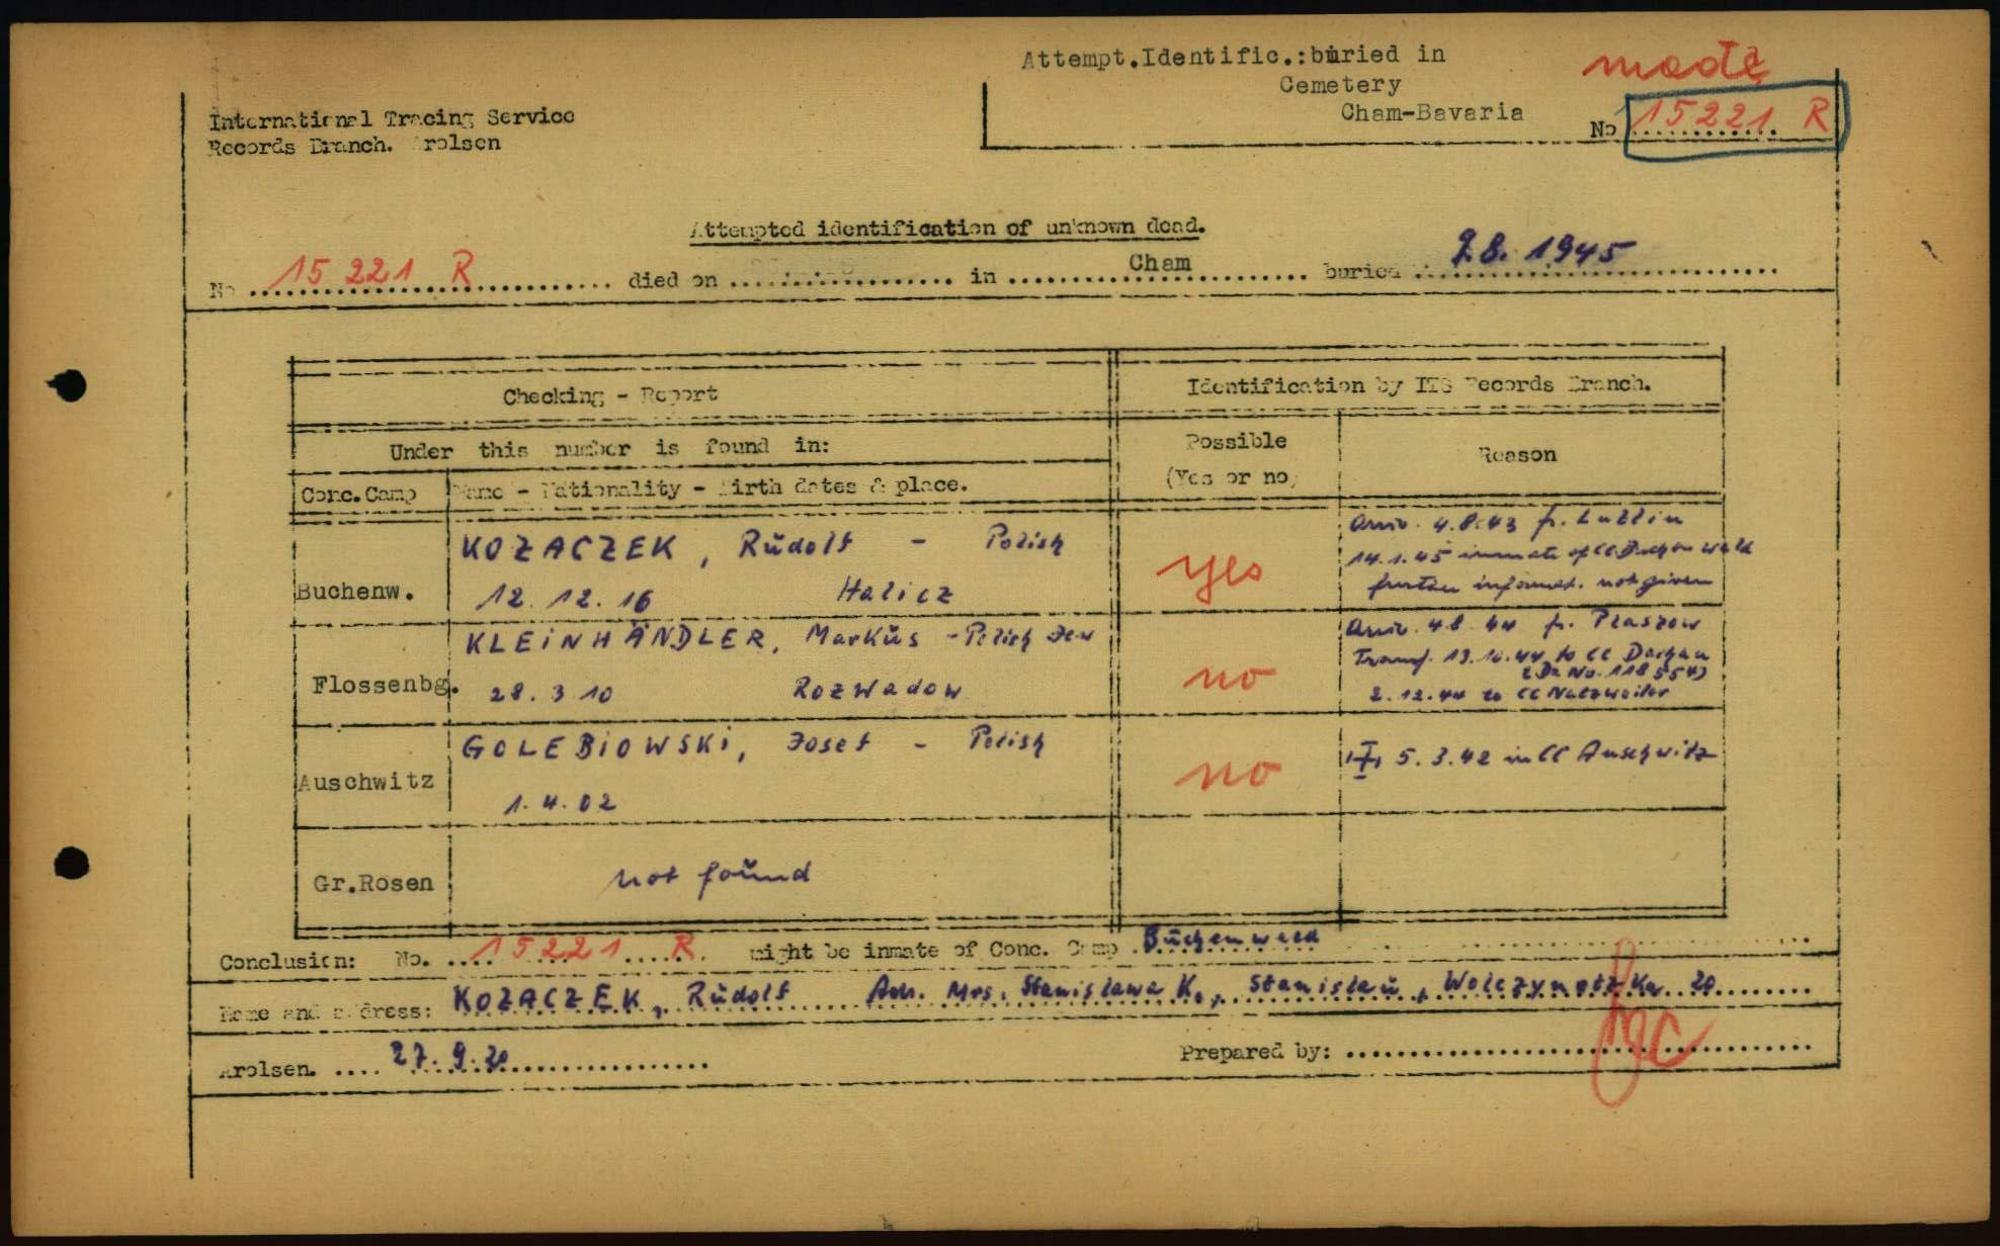 Attempt.Identific.:buried in
Cemetery
Cham-Bavaria
made
No 15221 R
International Tracing Service
Records Branch. Arolsen
Attempted identification of unknown dead.
No 15 221 R died on in Cham buried 9.8. 1945
Checking - Report
Identification by ITS Records Branch.
Under this number is found in:
Possible
(Yes or no)
Reason
Conc.Camp Name - Nationality - Birth dates & place.
Buchenw. KOZACZEK, Rudolf - Polish
12. 12. 16 Halicz
yes
Arriv. 4.8.43 fr. Lublin
14.1.45 inmate of CC Buchenwald
further informat. not given
Flossenbg. KLEINHÄNDLER, Markus - Polish Jew
28. 3 10 Rozwadow
no
Arriv. 4.8 44 fr. Plaszow
Transf. 19.10.44 to CC Dachau
(Da No. 118554)
2.12.44 to CC Natzweiler
Auschwitz GOLEBIOWSKI, Josef - Polish
1. 4. 02
no
5.3.42 in CC Auschwitz
Gr.Rosen not found
Conclusion: No. 15221 R. might be inmate of Conc. Camp Buchenwald
Name and address: KOZACZEK, Rudolf Adr. Mrs. Stanislawa K., Stanislau, 20
Arolsen. 27. 9. Prepared by: